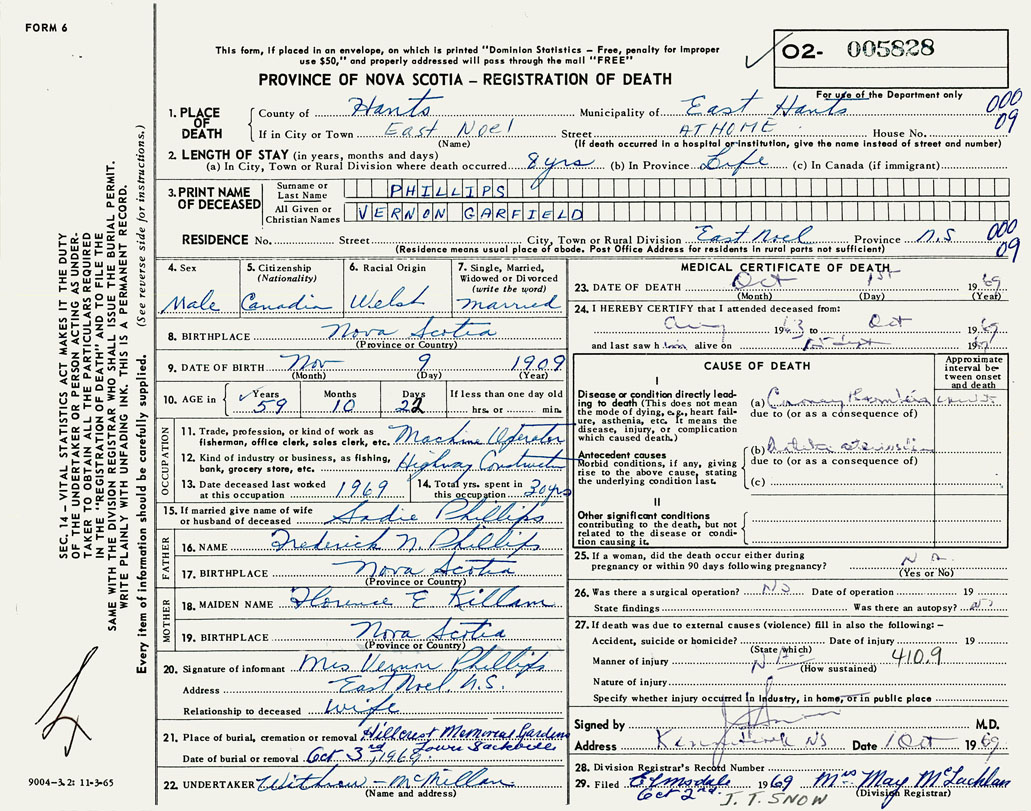 FORM 6
This form, if placed in an envelope, on which is printed "Dominion Statistics – Free, penalty for improper
use $50," and properly addressed will pass through the mail "FREE"
PROVINCE OF NOVA SCOTIA – REGISTRATION OF DEATH
02- 005828
For use of the Department only
000
09
1. PLACE OF DEATH
County of Hants Municipality of East Hants
If in City or Town East Noel Street AT HOME House No.
(Name) (If death occurred in a hospital or institution, give the name instead of street and number)
2. LENGTH OF STAY (in years, months and days)
(a) In City, Town or Rural Division where death occurred 8 yrs (b) In Province Life (c) In Canada (if immigrant)
3. PRINT NAME OF DECEASED
Surname or Last Name PHILLIPS
All Given or Christian Names VERNON GARFIELD
RESIDENCE No. Street City, Town or Rural Division East Noel Province N.S
(Residence means usual place of abode. Post Office Address for residents in rural parts not sufficient)
000
09
4. Sex
Male
5. Citizenship
(Nationality)
Canadian
6. Racial Origin
Welsh
7. Single, Married,
Widowed or Divorced
(write the word)
married
8. BIRTHPLACE Nova Scotia
(Province or Country)
9. DATE OF BIRTH Nov 9 1909
(Month) (Day) (Year)
10. AGE in Years Months Days If less than one day old
59 10 22 hrs. or min.
OCCUPATION
11. Trade, profession or kind of work as
fisherman, office clerk, sales clerk, etc. Machine Operator
12. Kind of industry or business, as fishing,
bank, grocery store, etc. Highway Construction
13. Date deceased last worked
at this occupation 1969
14. Total yrs. spent in
this occupation 30 yrs
15. If married give name of wife
or husband of deceased Sadie Phillips
FATHER
16. NAME Frederick N. Phillips
17. BIRTHPLACE Nova Scotia
(Province or Country)
MOTHER
18. MAIDEN NAME Florence E Killam
19. BIRTHPLACE Nova Scotia
(Province or Country)
20. Signature of informant Mrs Vernon Phillips
Address East Noel, N.S.
Relationship to deceased Wife
21. Place of burial, cremation or removal Hillcrest Memorial Gardens
Lower Sackville
Date of burial or removal Oct 3rd, 1969
22. UNDERTAKER Withrow – McMillan
(Name and address)
MEDICAL CERTIFICATE OF DEATH
23. DATE OF DEATH Oct 1st 1969
(Month) (Day) (Year)
24. I HEREBY CERTIFY that I attended deceased from:
1963 to Oct 1969
and last saw him alive on 1969
CAUSE OF DEATH
Approximate interval between onset and death
I
Disease or condition directly leading to death (This does not mean the mode of dying, e.g., heart failure, asthenia, etc. It means the disease, injury, or complication which caused death.)
(a) Coronary
due to (or as a consequence of)
Antecedent causes
Morbid conditions, if any, giving rise to the above cause, stating the underlying condition last.
(b)
due to (or as a consequence of)
(c)
II
Other significant conditions
contributing to the death, but not related to the disease or condition causing it.
25. If a woman, did the death occur either during
pregnancy or within 90 days following pregnancy?
(Yes or No)
26. Was there a surgical operation? No Date of operation 19
State findings Was there an autopsy? no
27. If death was due to external causes (violence) fill in also the following: –
Accident, suicide or homicide? Date of injury 19
(State which)
Manner of injury 410.9
(How sustained)
Nature of injury
Specify whether injury occurred in industry, in home, or in public place
Signed by M.D.
Address Kennetcook NS Date 1 Oct 1969
28. Division Registrar's Record Number
29. Filed Elmsdale 1969 Mrs May McLachlan
Oct 2nd. J. T. SNOW (Division Registrar)
SEC. 14 – VITAL STATISTICS ACT MAKES IT THE DUTY
OF THE UNDERTAKER OR PERSON ACTING AS UNDER-
TAKER TO OBTAIN ALL THE PARTICULARS REQUIRED
IN THE "REGISTRATION OF DEATH" AND TO FILE THE
SAME WITH THE DIVISION REGISTRAR WHO SHALL ISSUE THE BURIAL PERMIT.
WRITE PLAINLY WITH UNFADING INK. THIS IS A PERMANENT RECORD.
Every item of information should be carefully supplied. (See reverse side for instructions.)
9004–3.2: 11-3-65